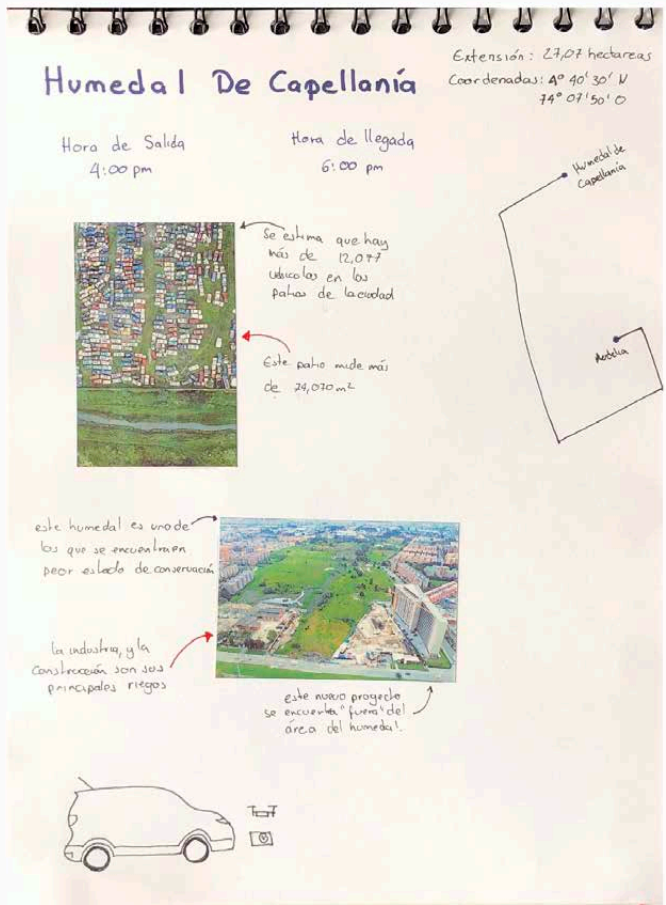 Humedal De Capellanía
Extensión: 27,07 hectareas
Coordenadas: 4° 40' 30' N
74° 07' 50' O
Hora de Salida
4:00 pm
Hora de llegada
6:00 pm
Humedal de
Capellanía
Se estima que hay
más de 12,077
vehiculos en los
patios de la ciudad
Este patio mide más
de 74,070 m²
este humedal es uno de
los que se encuentra en
peor estado de conservación
la industria, y la
construcción son sus
principales riegos
este nuevo proyecto
se encuentra "fuera" del
área del humedal.